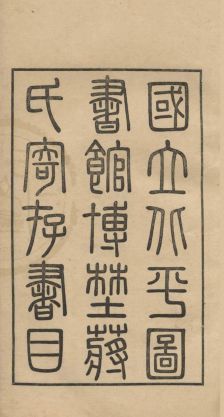 國立北平圖
書館博野蔣
氏寄存書目